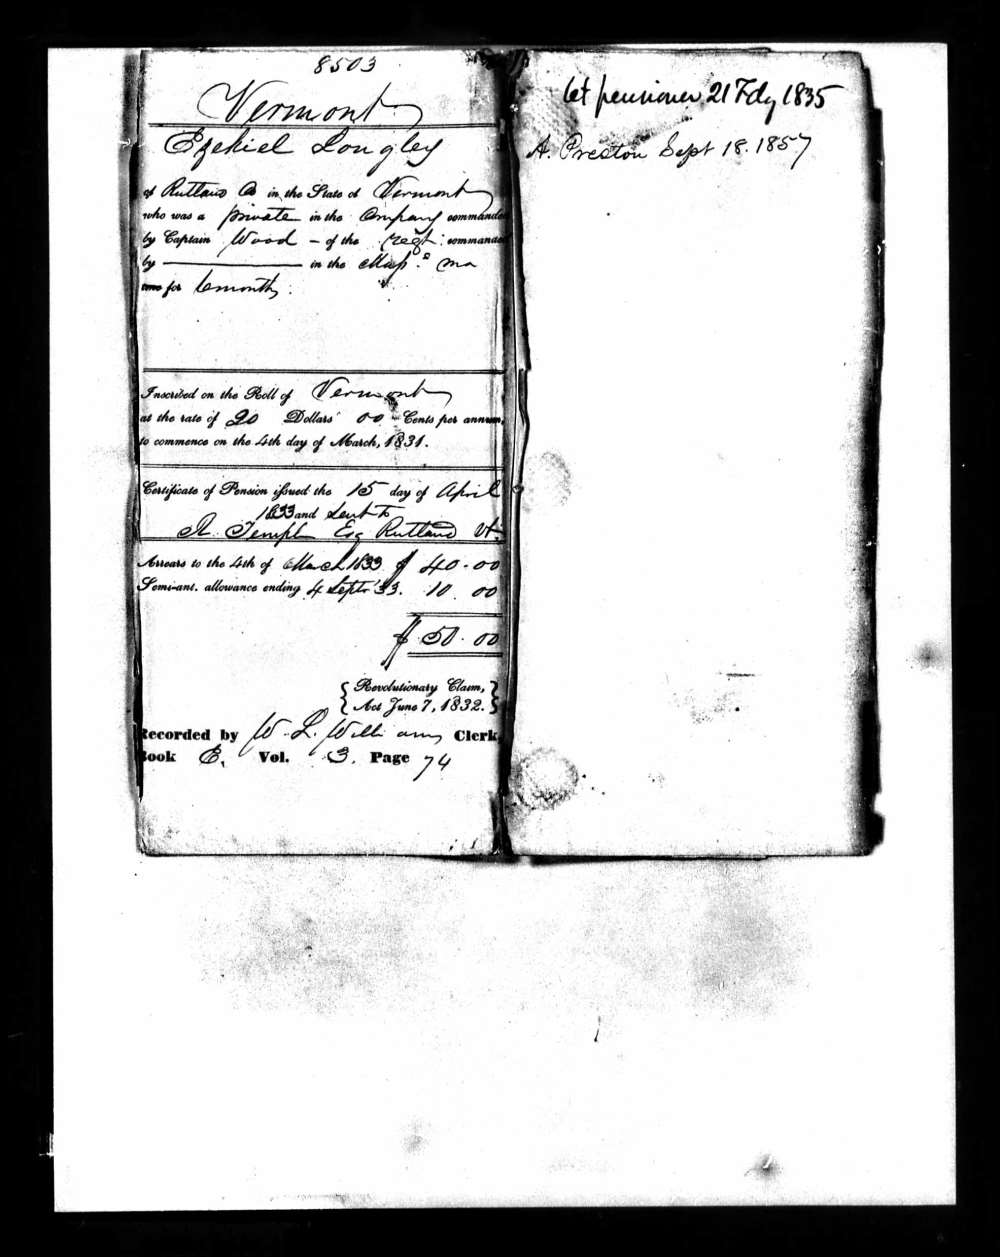 8503
Vermont
Ezekiel Longley
of Rutland Co in the State of Vermont
who was a private in the Company commanded
by Captain Wood – of the regt. commanded
by ——— in the Mass. ma
for 6 months.
Inscribed on the Roll of Vermont
at the rate of 20 Dollars 00 Cents per annum,
to commence on the 4th day of March, 1831.
Certificate of Pension issued the 15 day of April
1833 and Sent to
R. Temple Esq Rutland Vt.
Arrears to the 4th of March 1833 $ 40.00
Semi-anl. allowance ending 4 Septr '33. 10.00
$ 50.00
Revolutionary Claim,
Act June 7, 1832.
Recorded by W. L. Williams Clerk,
Book E. Vol. 3. Page 74
let pensioner 21 Feby 1835
A. Preston Sept 18. 1857